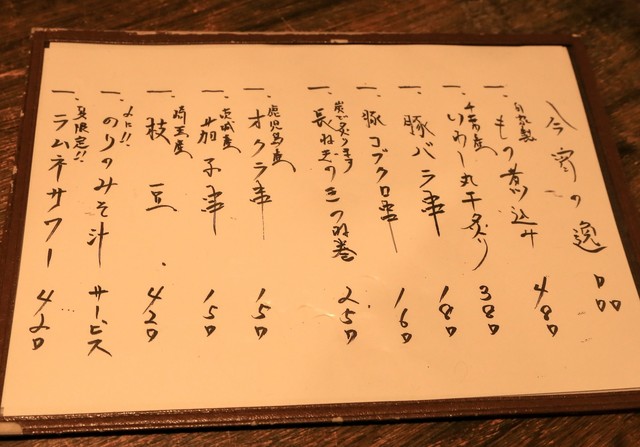 今宵の逸品
自家製
一、もつ煮込み 480
千葉産
一、いわし丸干炙り 380
一、豚バラ串 180
一、豚コブクロ串 160
炭で炙ります
一、長ねぎのきつね巻 250
鹿児島産
一、オクラ串 150
茨城産
一、茄子串 150
埼玉産
一、枝豆 420
一、のりのみそ汁 サービス
夏限定!!
一、ラムネサワー 420